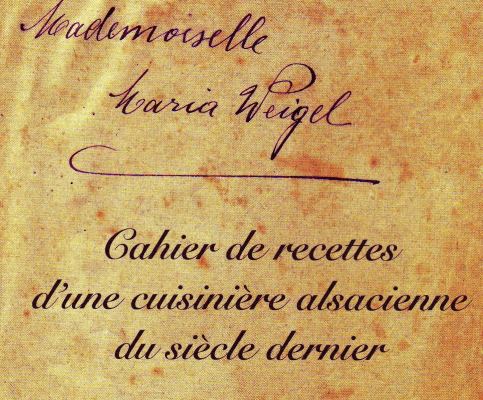 Mademoiselle
Maria Weigel
Cahier de recettes
d'une cuisinière alsacienne
du siècle dernier